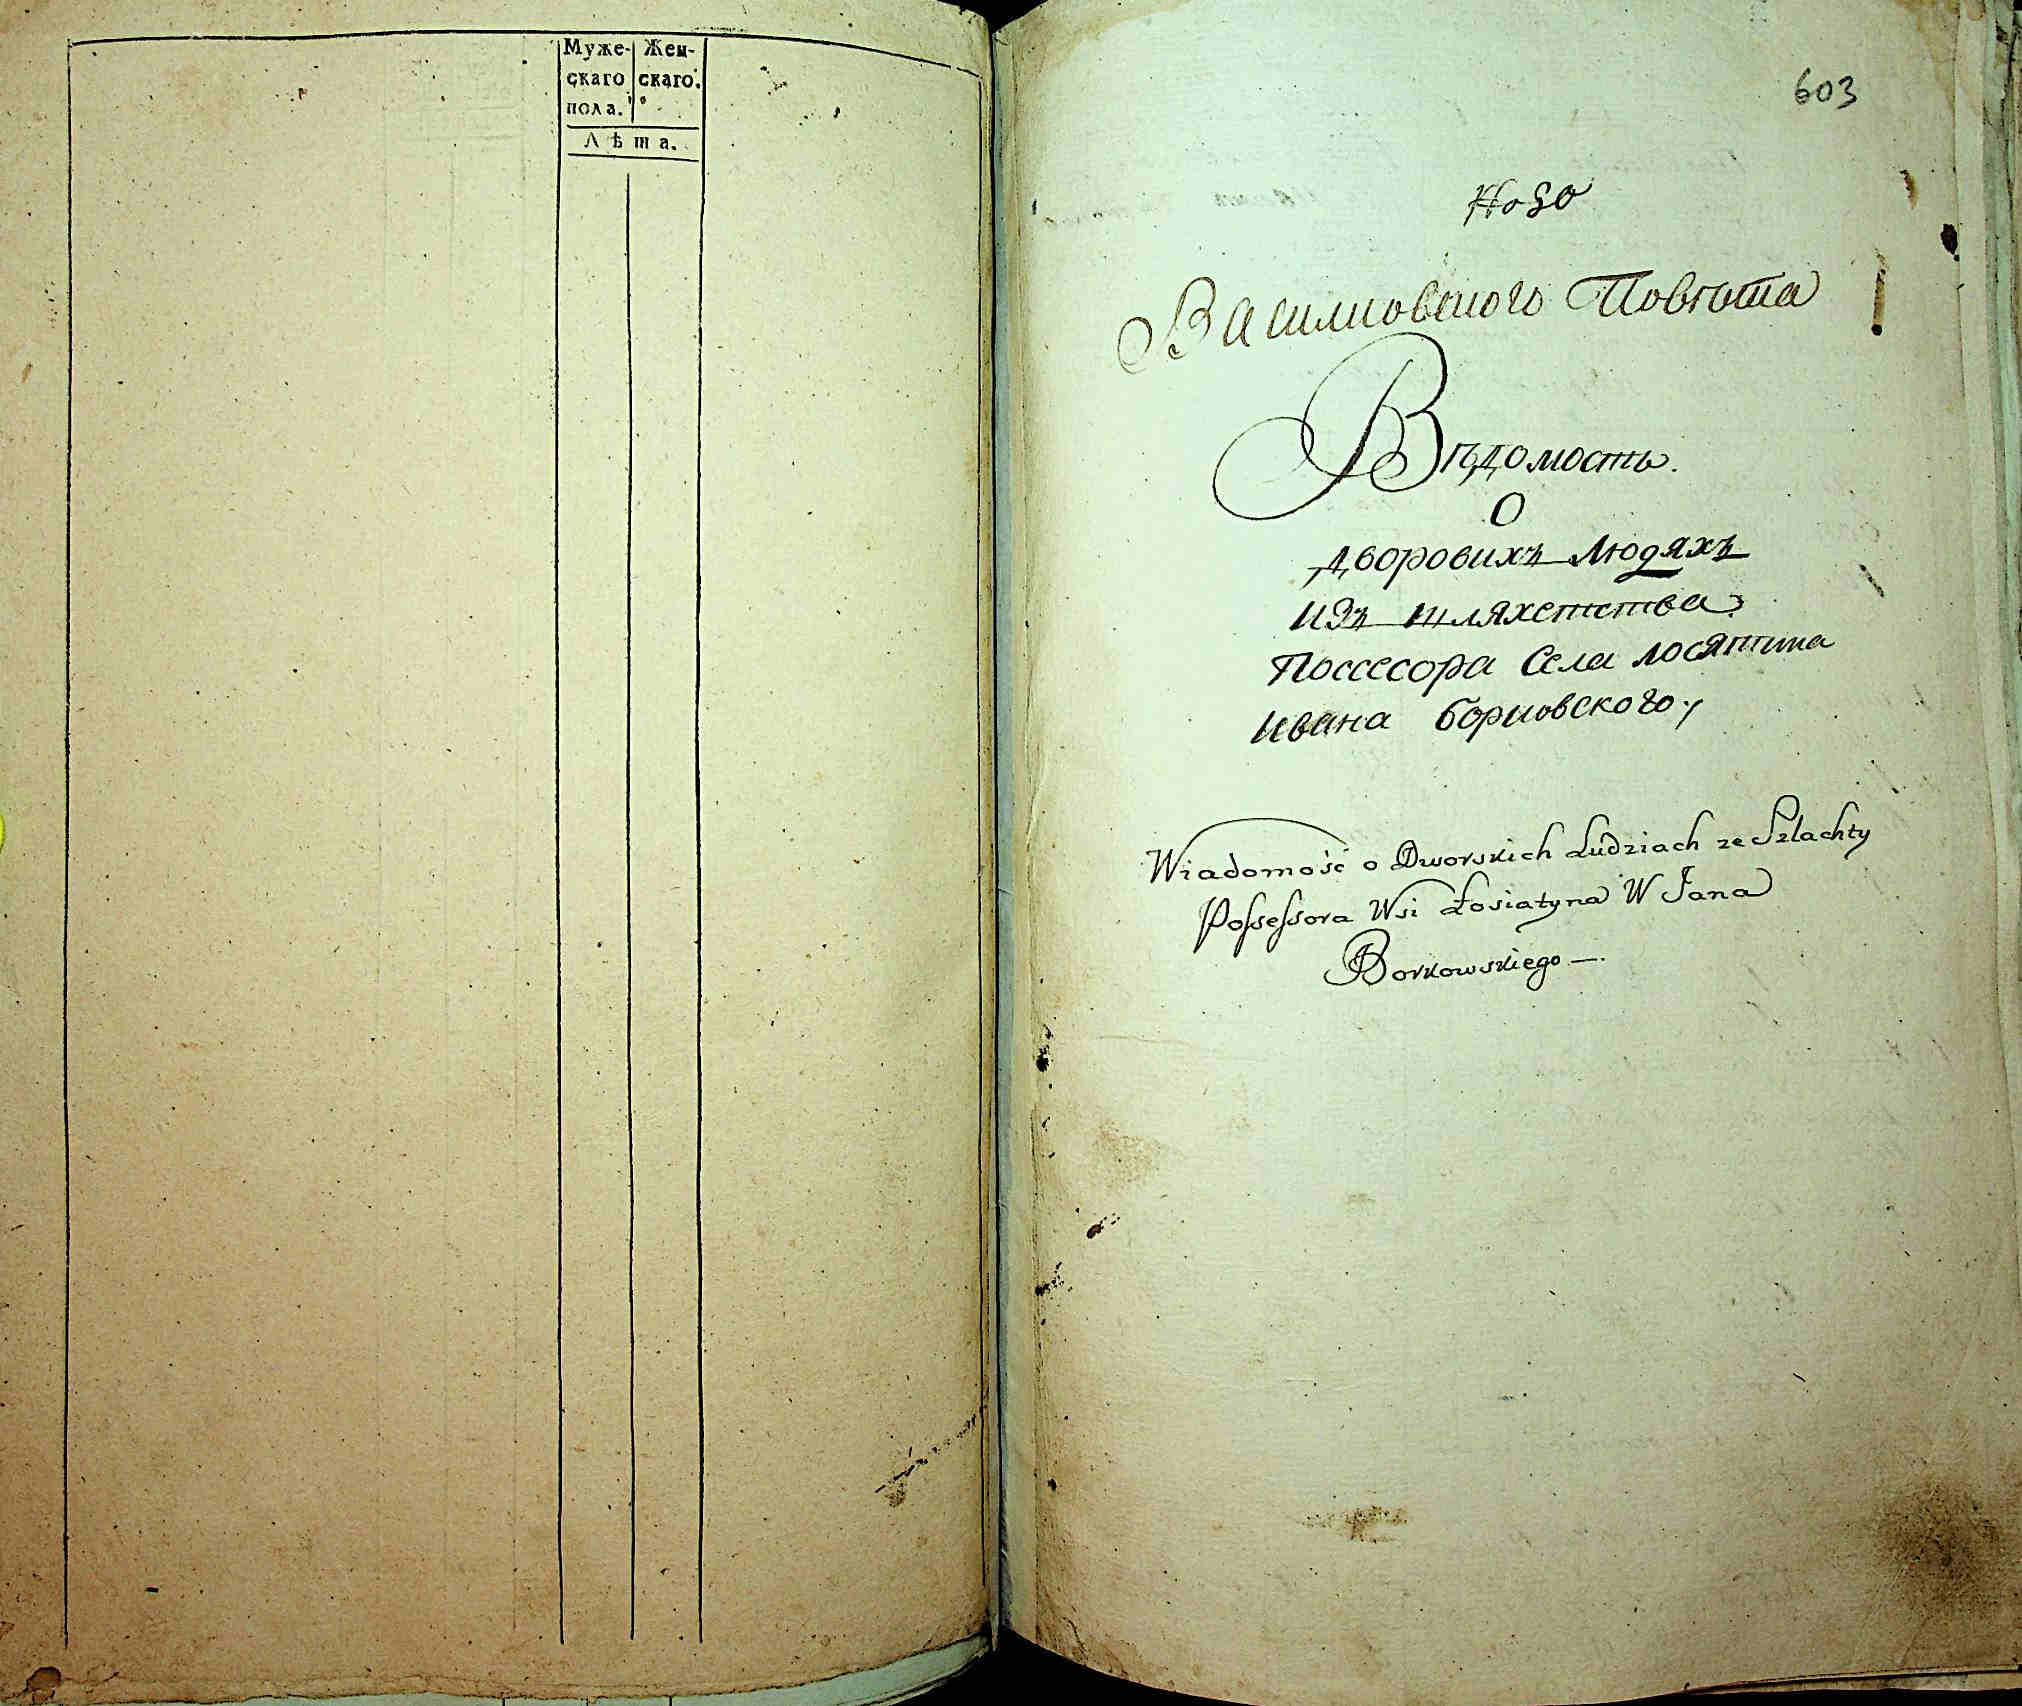 Муже- Жен-
скаго скаго.
пола.
Лѣта.
603
Василковского Повѣта
Вѣдомость.
О
дворовихъ людяхъ
изъ шляхетства
Поссесора Села лосятина
ивана борковского
Wiadomość o Dworskich Ludziach ze Szlachty
Possessora Wsi Łosiatyna W Jana
Borkowskiego —.